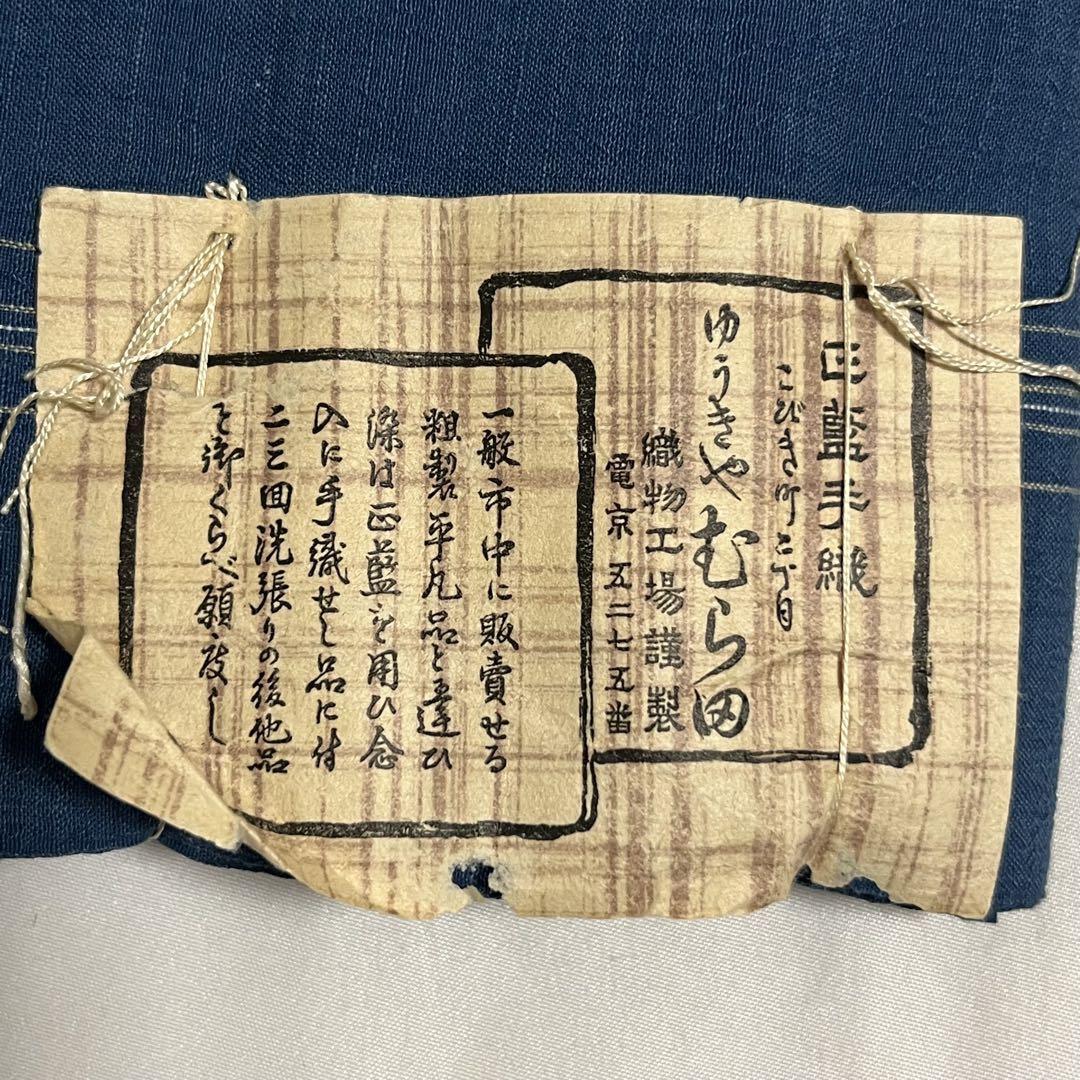 正藍手織
こびき町二丁目
ゆうきやむら田
織物工場謹製
電京五二七五番
一般市中に販賣せる
粗製平凡品と違ひ
染は正藍を用ひ念
入に手織せし品に付
二三囬洗張りの後他品
と御くらべ願度し